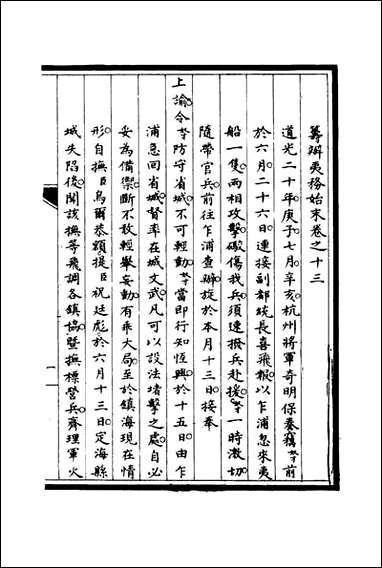 籌辦夷務始末卷之十三
道光二十年庚子七月辛亥杭州將軍奇明保奏竊等前
於六月二十六日連接副都統長喜飛報以乍浦忽來夷
船一隻兩相攻擊礮傷我兵須速撥兵赴援等一時激切
隨帶官兵前往乍浦查辦旋於本月十三日接奉
上諭令等防守省城不可輕動等當即行知恆興於十五日由乍
浦急回省城督率在城文武凡可以設法堵擊之處自必
妥為備禦斷不敢輕舉妄動有乖大局至於鎮海現在情
形自撫臣烏爾恭額提臣祝廷彪於六月十三日定海縣
城失陷後聞該撫等飛調各鎮協暨撫標營兵齊理軍火